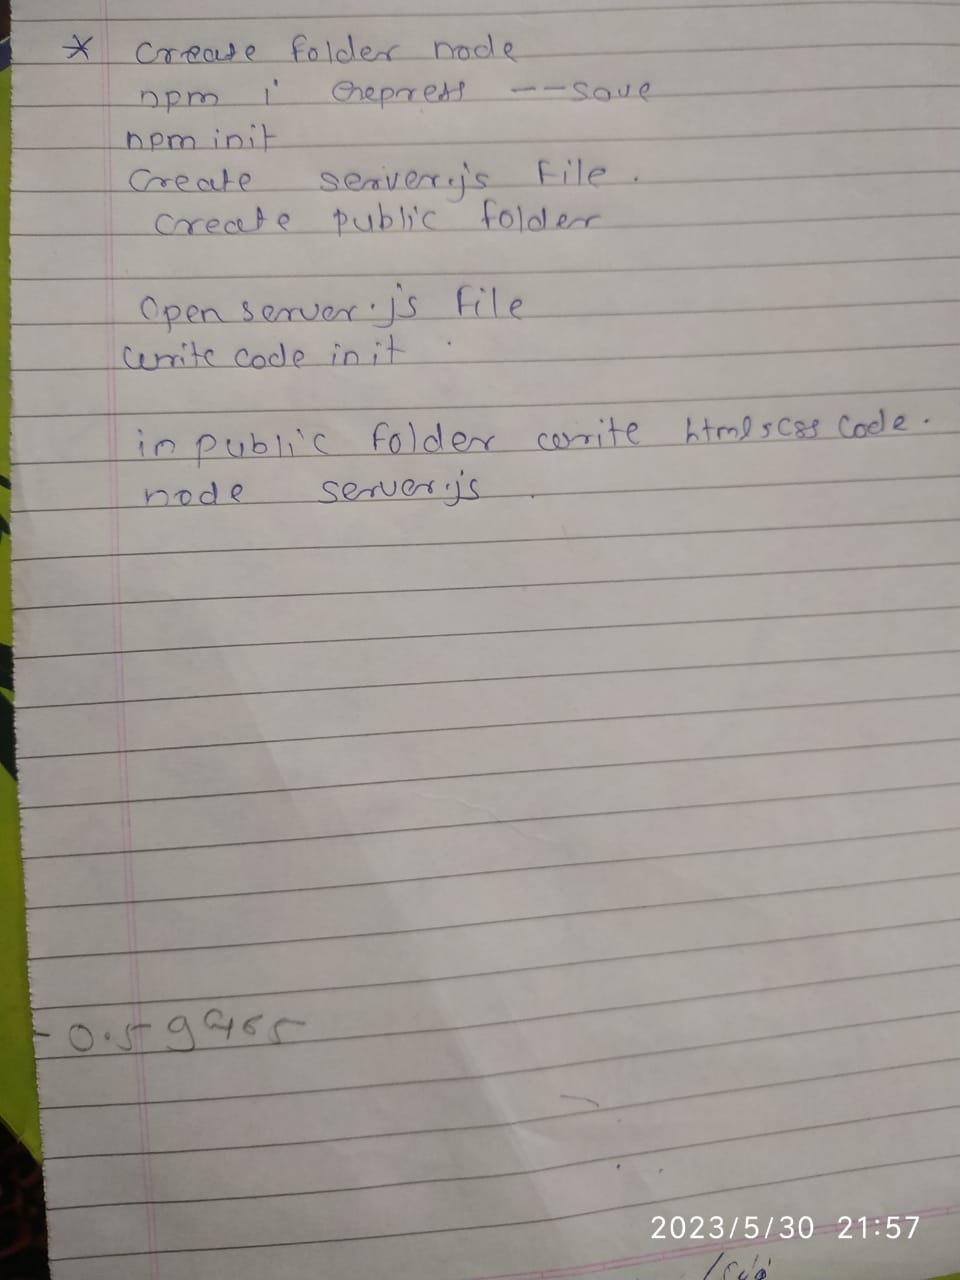 * Create folder node
npm i express --save
npm init
Create server.js file.
Create public folder
Open server.js file
write code in it
in public folder write html & css code.
node server.js
2023/5/30 21:57